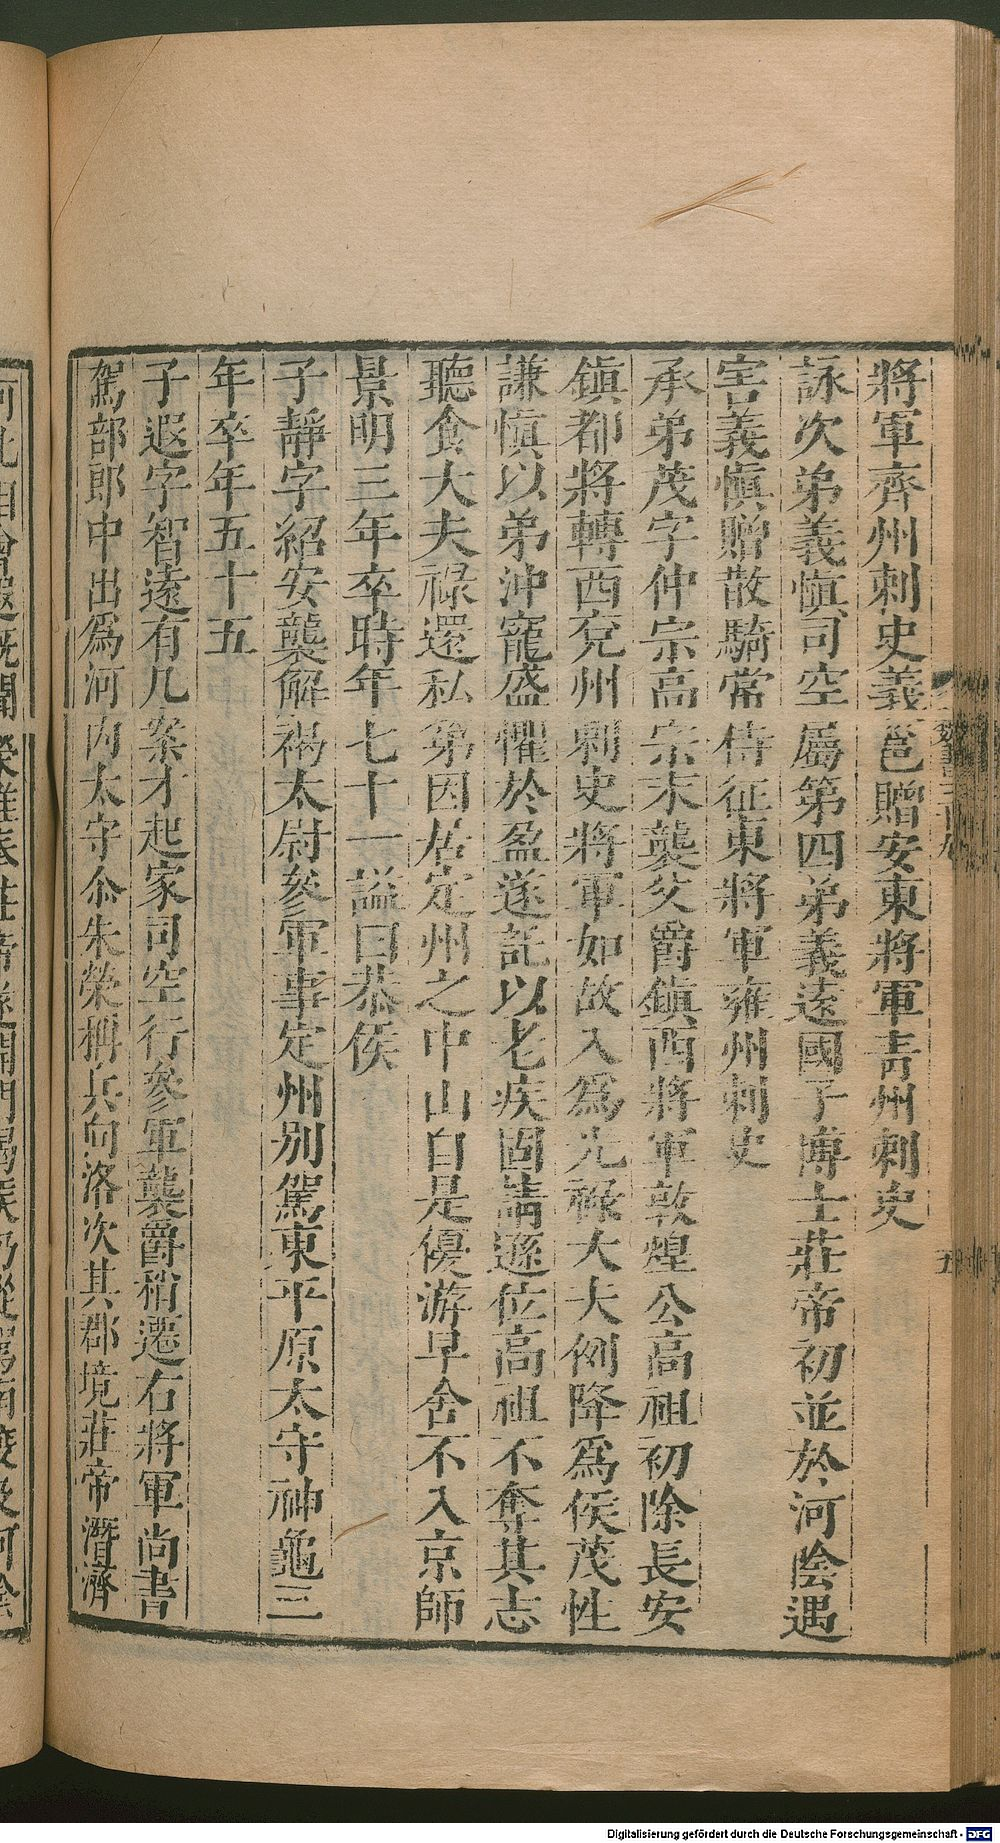 將軍齊州刺史義邕贈安東將軍青州刺史
詠次弟義愼司空屬第四弟義遠國子博士莊帝初並於河陰遇
害義愼贈散騎常侍征東將軍雍州刺史
承弟茂字仲宗高宗末襲父爵鎭西將軍敦煌公高祖初除長安
鎭都將轉西兗州刺史將軍如故入爲光祿大夫例降爲侯茂性
謙愼以弟沖寵盛懼於盈遂託以老疾固請遜位高祖不奪其志
聽食大夫祿還私第因居定州之中山自是優游早舍不入京師
景明三年卒時年七十一謚曰恭侯
子靜字紹安襲解褐太尉參軍事定州别駕東平原太守神龜三
年卒年五十五
子遐字智遠有几案才起家司空行參軍襲爵稍遷右將軍尚書
駕部郎中出爲河內太守尒朱榮稱兵向洛次其郡境莊帝潛濟
Digitalisierung gefördert durch die Deutsche Forschungsgemeinschaft - DFG